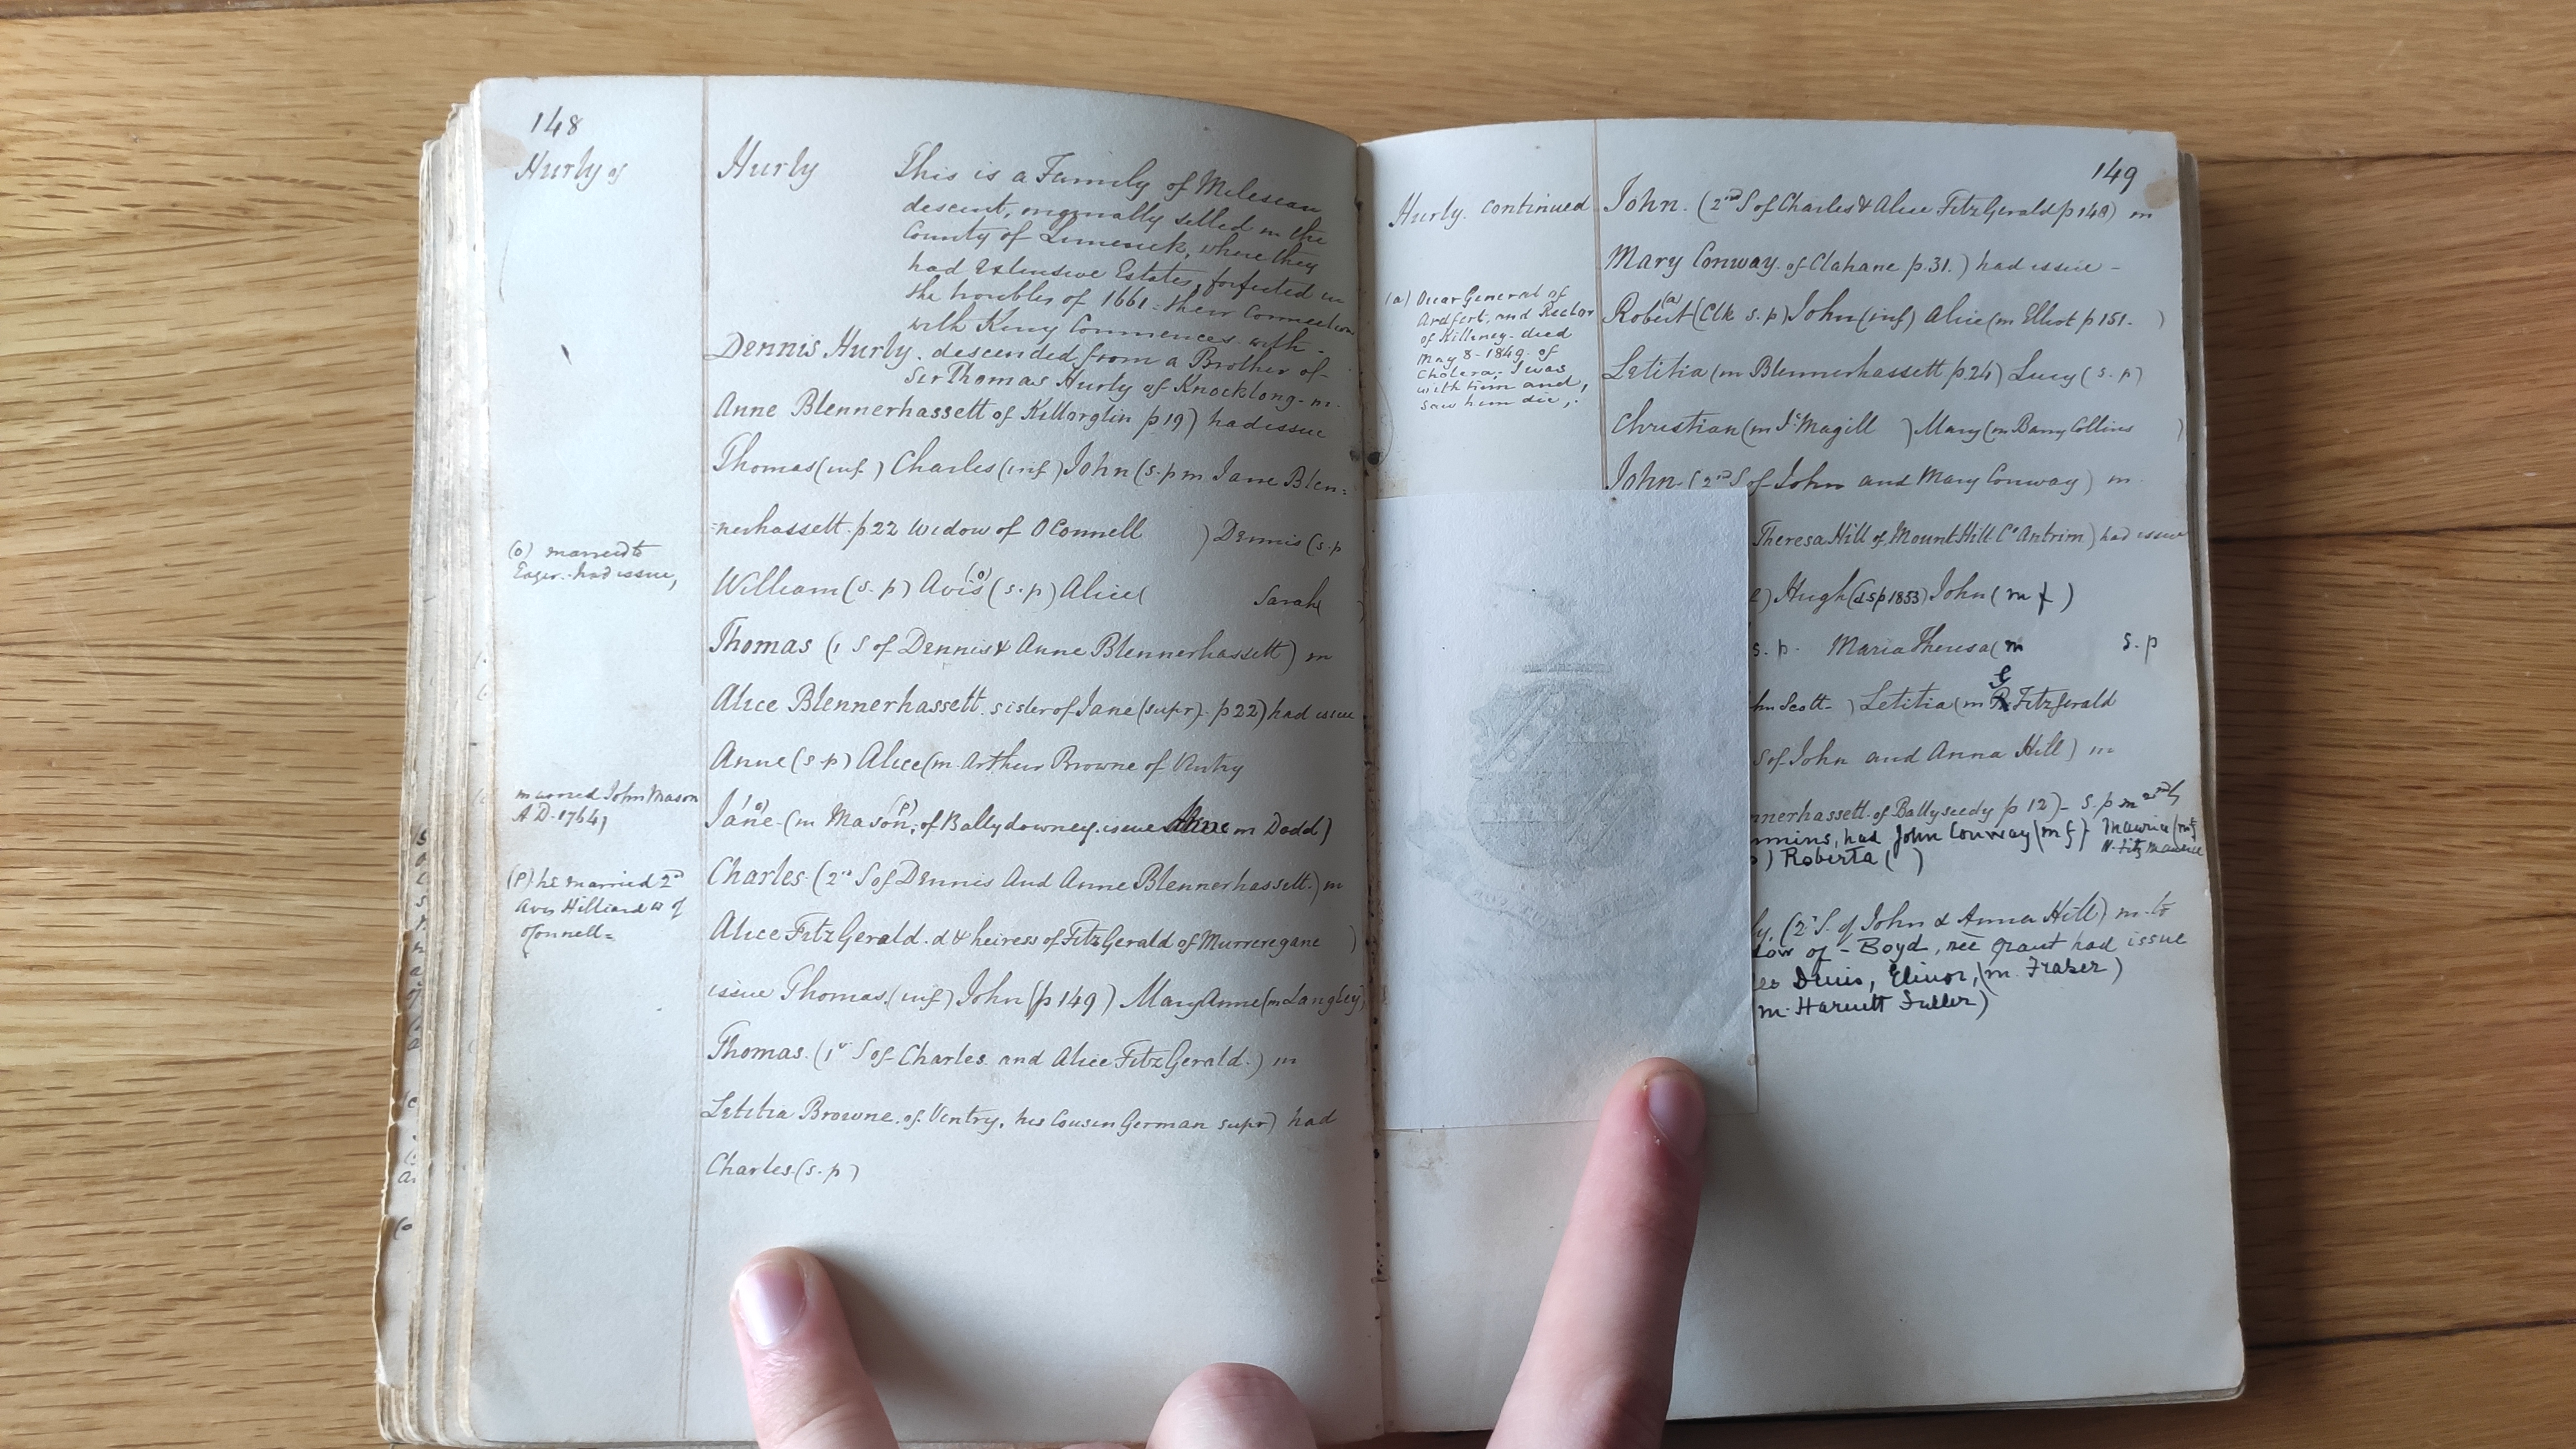 148
Hurly of
Hurly This is a Family of Milesean
descent, originally setled in the
County of Limerick, where they
had Extensive Estates, forfeited in
the troubles of 1661 - their Connection
with Kerry Commences with -
Dennis Hurly. descended from a Brother of
Sir Thomas Hurly of Knocklong - m.
Anne Blennerhassett of Killorglin p 19) had issue
Thomas (inf) Charles (inf) John (s. p m Jane Blen=
=nerhassett. p 22 Widow of OConnell ) Dennis (s. p
(o) married to
Eager. had issue,
William (s. p) Avis (o) (s. p) Alice ( Sarah )
Thomas (1 S of Dennis & Anne Blennerhassett) m
Alice Blennerhassett. sister of Jane (supr). p 22) had issue
Anne (s p) Alice (m Arthur Browne of Ventry
married John Mason
AD. 1764,
Jane (o) (m Mason (p), of Ballydowney. issue m Dodd)
(P) he married 2nd
Avis Hilliard w of
OConnell=
Charles (2nd S of Dennis And Anne Blennerhassett.) m
Alice FitzGerald. d & heiress of FitzGerald of Murreregane )
issue Thomas. (inf) John (p 149) Mary Anne (m Langley)
Thomas. (1st S of Charles and Alice FitzGerald.) m
Letitia Browne. of Ventry. his Cousin German supr) had
Charles. (s. p)
149
Hurly. Continued
John. (2nd S of Charles & Alice FitzGerald p 148) m
Mary Conway. of Clahane p. 31.) had issue -
(a) Vicar General of
Ardfert, and Rector
of Killiney - died
May 8 - 1849. of
Cholera,. I was
with him and,
saw him die,.
Robert (a) (Clk s. p) John (inf) Alice (m Elliot p 151. )
Letitia (m Blennerhassett p. 24) Lucy (s. p)
Christian (m Magill ) Mary (m Barry Collins )
John (2nd S of John and Mary Conway) m
Theresa Hill of Mount Hill Co Antrim) had issue
) Hugh (d s p 1853) John (m f)
s. p. Maria Theresa (m s. p
hn Scott - ) Letitia (m G FitzGerald
S of John and Anna Hill) m
nnerhassett. of Ballyseedy p 12) - s. p m 2ndly
mmins, had John Conway (m f) Maurice (m f
N. Fitz Maurice
) Roberta ( )
ly. (2nd S. of John & Anna Hill) m. to
dow of - Boyd, née Grant had issue
es Denis, Elinor, (m. Fraser)
m. Harnett Fuller)